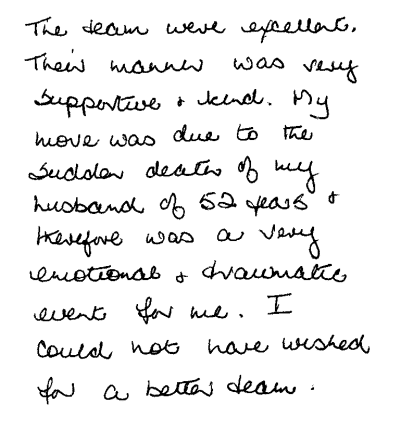 The team were excellent.
Their manner was very
supportive & kind. My
move was due to the
sudden death of my
husband of 52 years &
therefore was a very
emotional & traumatic
event for me. I
could not have wished
for a better team.